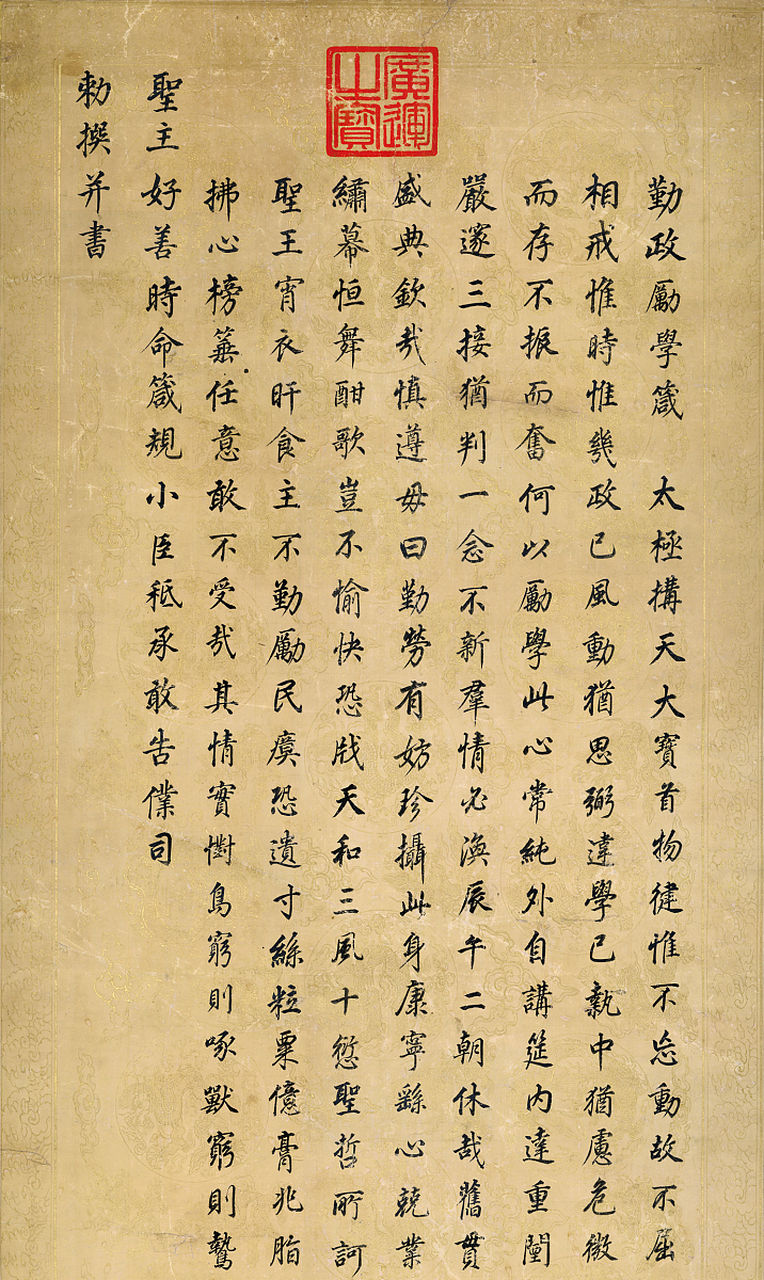 廣運之寶
勤政勵學箴 太極搆天大寶首物健惟不忘動故不屈
相戒惟時惟幾政已風動猶思弼違學已執中猶慮危微
而存不振而奮何以勵學此心常純外自講筵内達重闈
嚴邃三接猶判一念不新羣情必渙辰午二朝休哉舊貫
盛典欽哉慎遵毋曰勤勞有妨珍攝此身康寧繇心兢業
繡幕恒舞酣歌豈不愉快恐戕天和三風十愆聖哲所訶
聖王宵衣旰食主不勤勵民瘼恐遺寸絲粒粟億膏兆脂
拂心榜箠任意敢不受哉其情實懟鳥窮則啄獸窮則驁
聖主好善時命箴規小臣秪承敢告僕司
勅撰并書